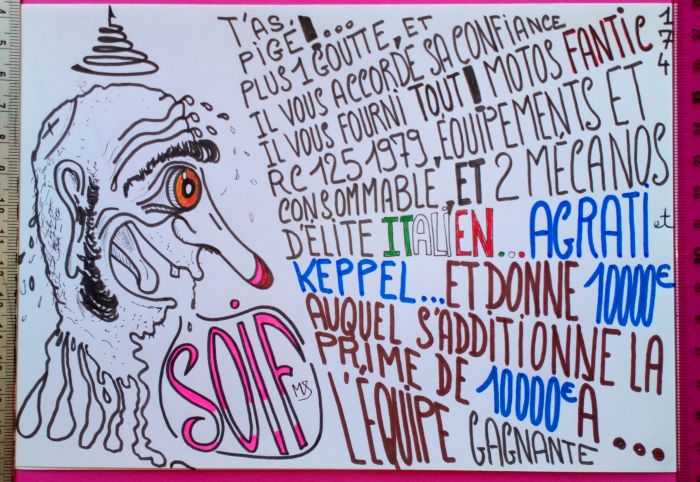 T'AS
PIGÉ!...
PLUS 1 GOUTTE, ET
IL VOUS ACCORDE SA CONFIANCE
IL VOUS FOURNI TOUT! MOTOS FANTIC
RC 125 1979, ÉQUIPEMENTS ET
CONSOMMABLE, ET 2 MÉCANOS
D'ÉLITE ITALIEN... AGRATI et
KEPPEL...ET DONNE 10000€
AUQUEL S'ADDITIONNE LA
PRIME DE 10000€ A...
L'ÉQUIPE GAGNANTE
174
SOIF